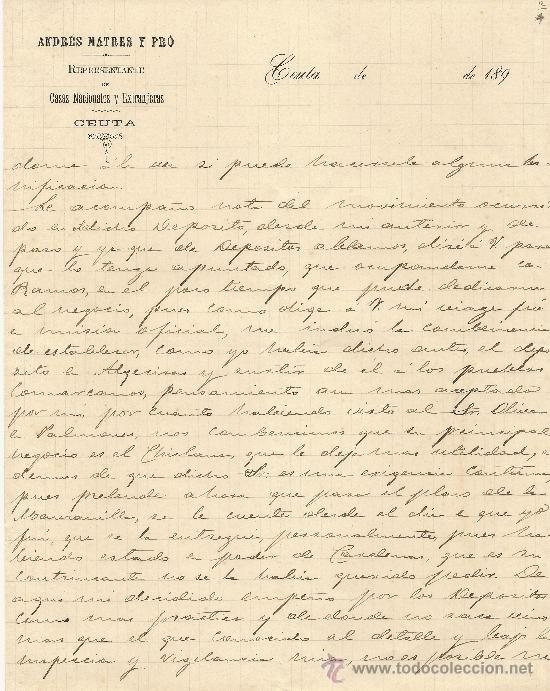 2
ANDRÉS MATRES Y PRÓ
REPRESENTANTE
DE
Casas Nacionales y Extranjeras
CEUTA
Ceuta de de 189
dome á la ver si puede hacersele alguna bo-
nificacion.
Le acompaño nota del movimiento ocurri-
do en dicho Deposito, desde mi anterior y de
paso y ya que de Depositos hablamos, diré á V. para
que lo tenga apuntado, que ocupandome
Ramos, en el poco tiempo que pude dedicarme
al negocio, pues como dige á V. mi viage fué
á mision oficial, me indicó la conveniencia
de establecer, como yo habia dicho antes, el depo-
sito en Algeciras y envios de el á los pueblos
comarcanos, pensamiento aun mas aceptado
por mi, por cuanto habiendo visto al Sr. Oliva
en Palmones, nos convencimos que su principal
negocio es el Chiclana, que le deja mas utilidad, á
demas de que dicho Sr. es una exigencia continua,
pues pretende ahora que para el plazo de la
Manzanilla, se le cuente desde el dia en que yo
fui, que se la entregué, personalmente, pues ha-
biendo estado en poder de Cardenas, que es su
contrincante no se la habia querido pedir. De
aqui mi decidido empeño por los Depositos
como mas practico y de donde no saca vino
mas que el que conocido al detalle y bajo la
inspeccion y vigilancia mia, no es posible
todocoleccion.net